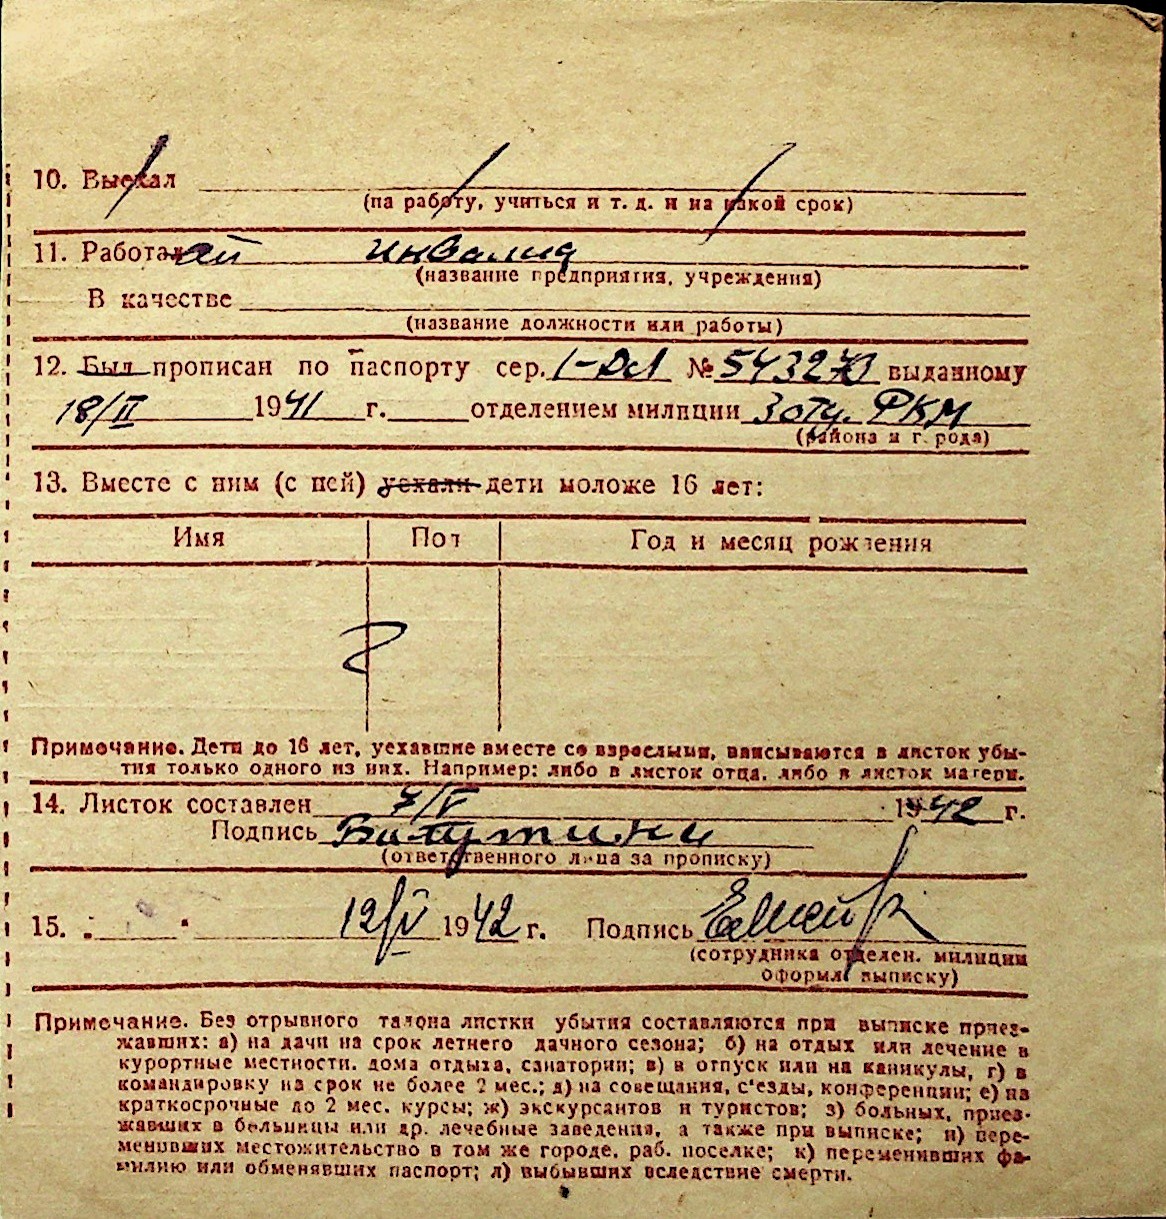 10. Выехал
(на работу, учиться и т. д. и на какой срок)
11. Работал инвалид
(название предприятия, учреждения)
В качестве
(название должности или работы)
12. Был прописан по паспорту сер. № выданному
18/II 1941 г. отделением милиции 3 РКМ
(района и города)
13. Вместе с ним (с ней) уехали дети моложе 16 лет:
Имя Пол Год и месяц рождения
Примечание. Дети до 16 лет, уехавшие вместе со взрослыми, вписываются в листок убы-
тия только одного из них. Например: либо в листок отца, либо в листок матери.
14. Листок составлен 7/V 1942 г.
Подпись
(ответственного лица за прописку)
15. 12/V 1942 г. Подпись
(сотрудника отделен. милиции
оформл. выписку)
Примечание. Без отрывного талона листки убытия составляются при выписке приез-
жавших: а) на дачи на срок летнего дачного сезона; б) на отдых или лечение в
курортные местности, дома отдыха, санатории; в) в отпуск или на каникулы, г) в
командировку на срок не более 2 мес.; д) на совещания, с'езды, конференции; е) на
краткосрочные до 2 мес. курсы; ж) экскурсантов и туристов; з) больных, приез-
жавших в больницы или др. лечебные заведения, а также при выписке; и) пере-
менивших местожительство в том же городе, раб. поселке; к) переменивших фа-
милию или обменявших паспорт; л) выбывших вследствие смерти.